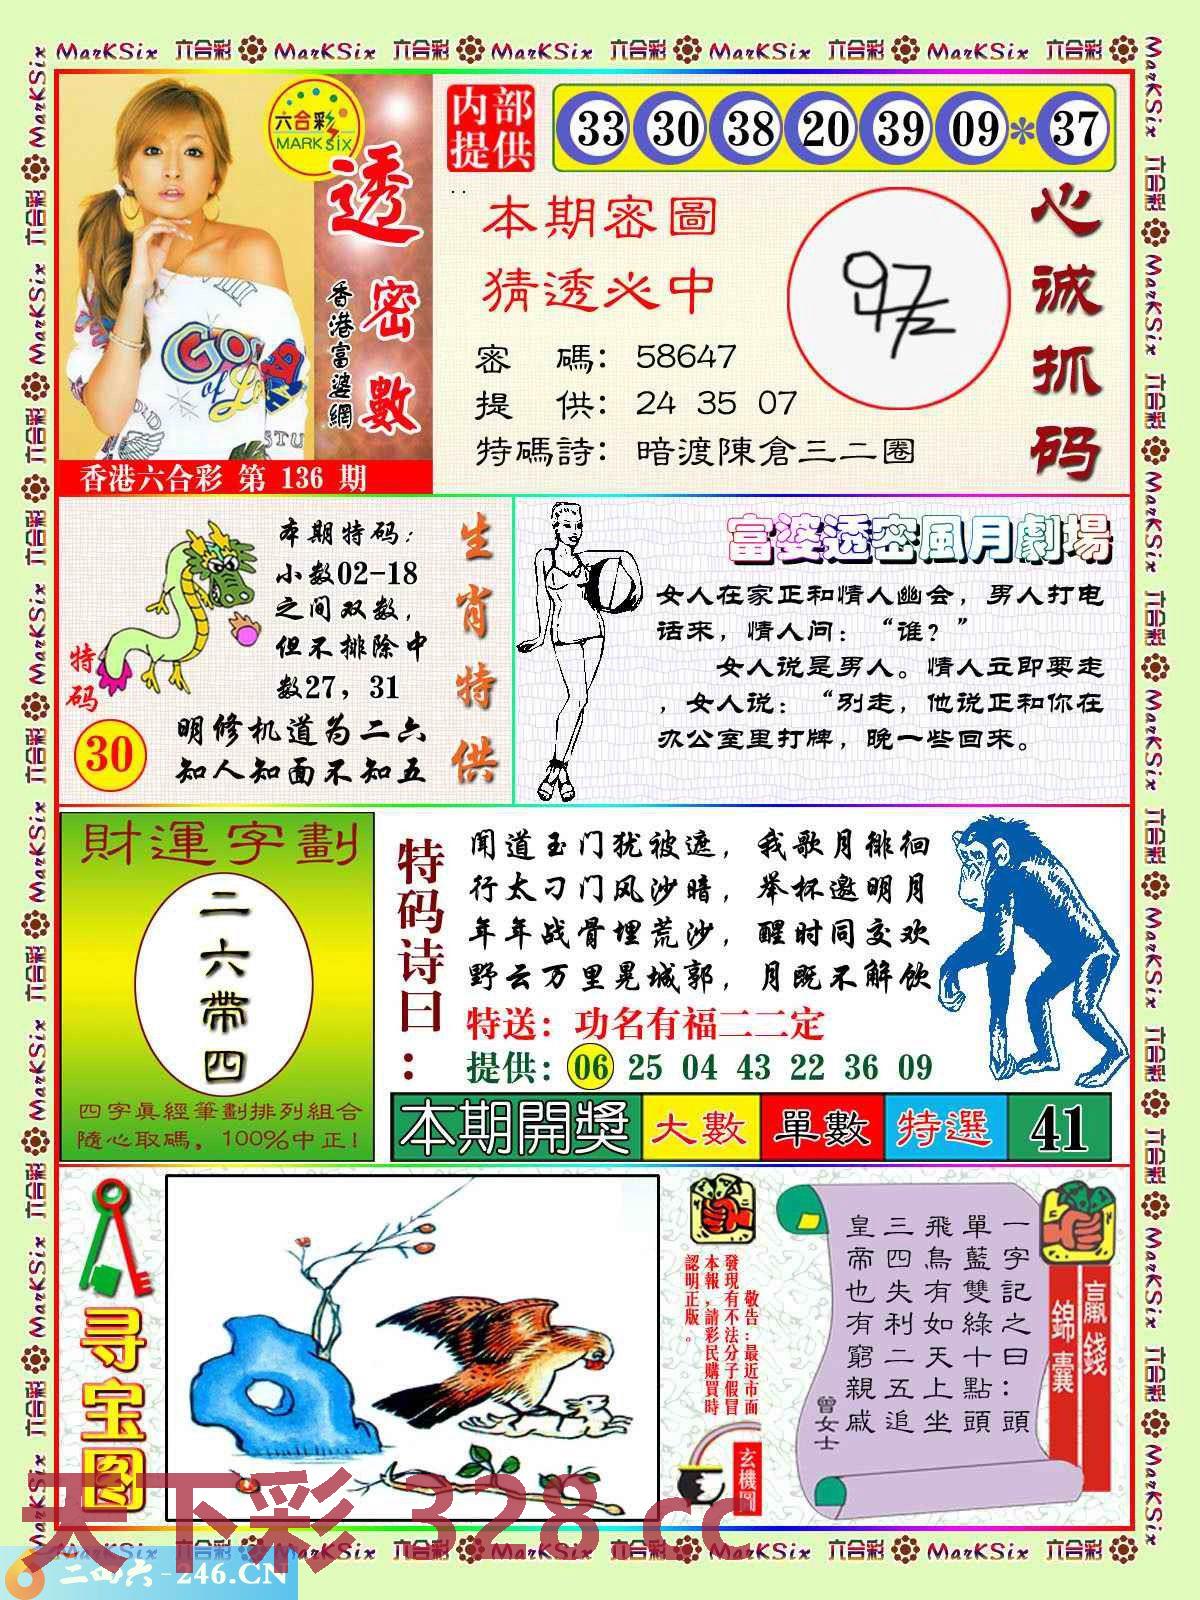 MarKSix 六合彩 MarKSix 六合彩 MarKSix 六合彩 MarKSix 六合彩 MarKSix 六合彩
六合彩
MARK SIX
透密數
香港富婆網
香港六合彩 第 136 期
内部提供
33 30 38 20 39 09 * 37
本期密圖
猜透必中
密 碼: 58647
提 供: 24 35 07
特碼詩: 暗渡陳倉三二圈
心诚抓码
本期特码:
小数02-18
之间双数,
但不排除中
数27, 31
特码
30
明修机道为二六
知人知面不知五
生肖特供
富婆透密風月劇場
女人在家正和情人幽会，男人打电
话来，情人问：“谁？”
女人说是男人。情人立即要走
，女人说：“别走，他说正和你在
办公室里打牌，晚一些回来。
財運字劃
二六帶四
四字真經筆劃排列組合
隨心取碼, 100%中正!
特码诗曰:
闻道玉门犹被遮，我歌月徘徊
行太刁门风沙暗，举杯邀明月
年年战骨埋荒沙，醒时同交欢
野云万里晃城郭，月既不解饮
特送: 功名有福二二定
提供: 06 25 04 43 22 36 09
本期開獎 大數 單數 特選 41
寻宝图
敬告:最近市面
發現有不法分子假冒
本報,請彩民購買時
認明正版。
玄機圖
一字記之曰:頭
單藍雙綠十點頭
飛鳥有如天上坐
三四失利二五追
皇帝也有窮親戚
曾女士
贏錢
錦囊
天下彩 328.cc
二四六-246.CN
MarKSix 六合彩 MarKSix 六合彩 MarKSix 六合彩 MarKSix 六合彩 MarKSix 六合彩